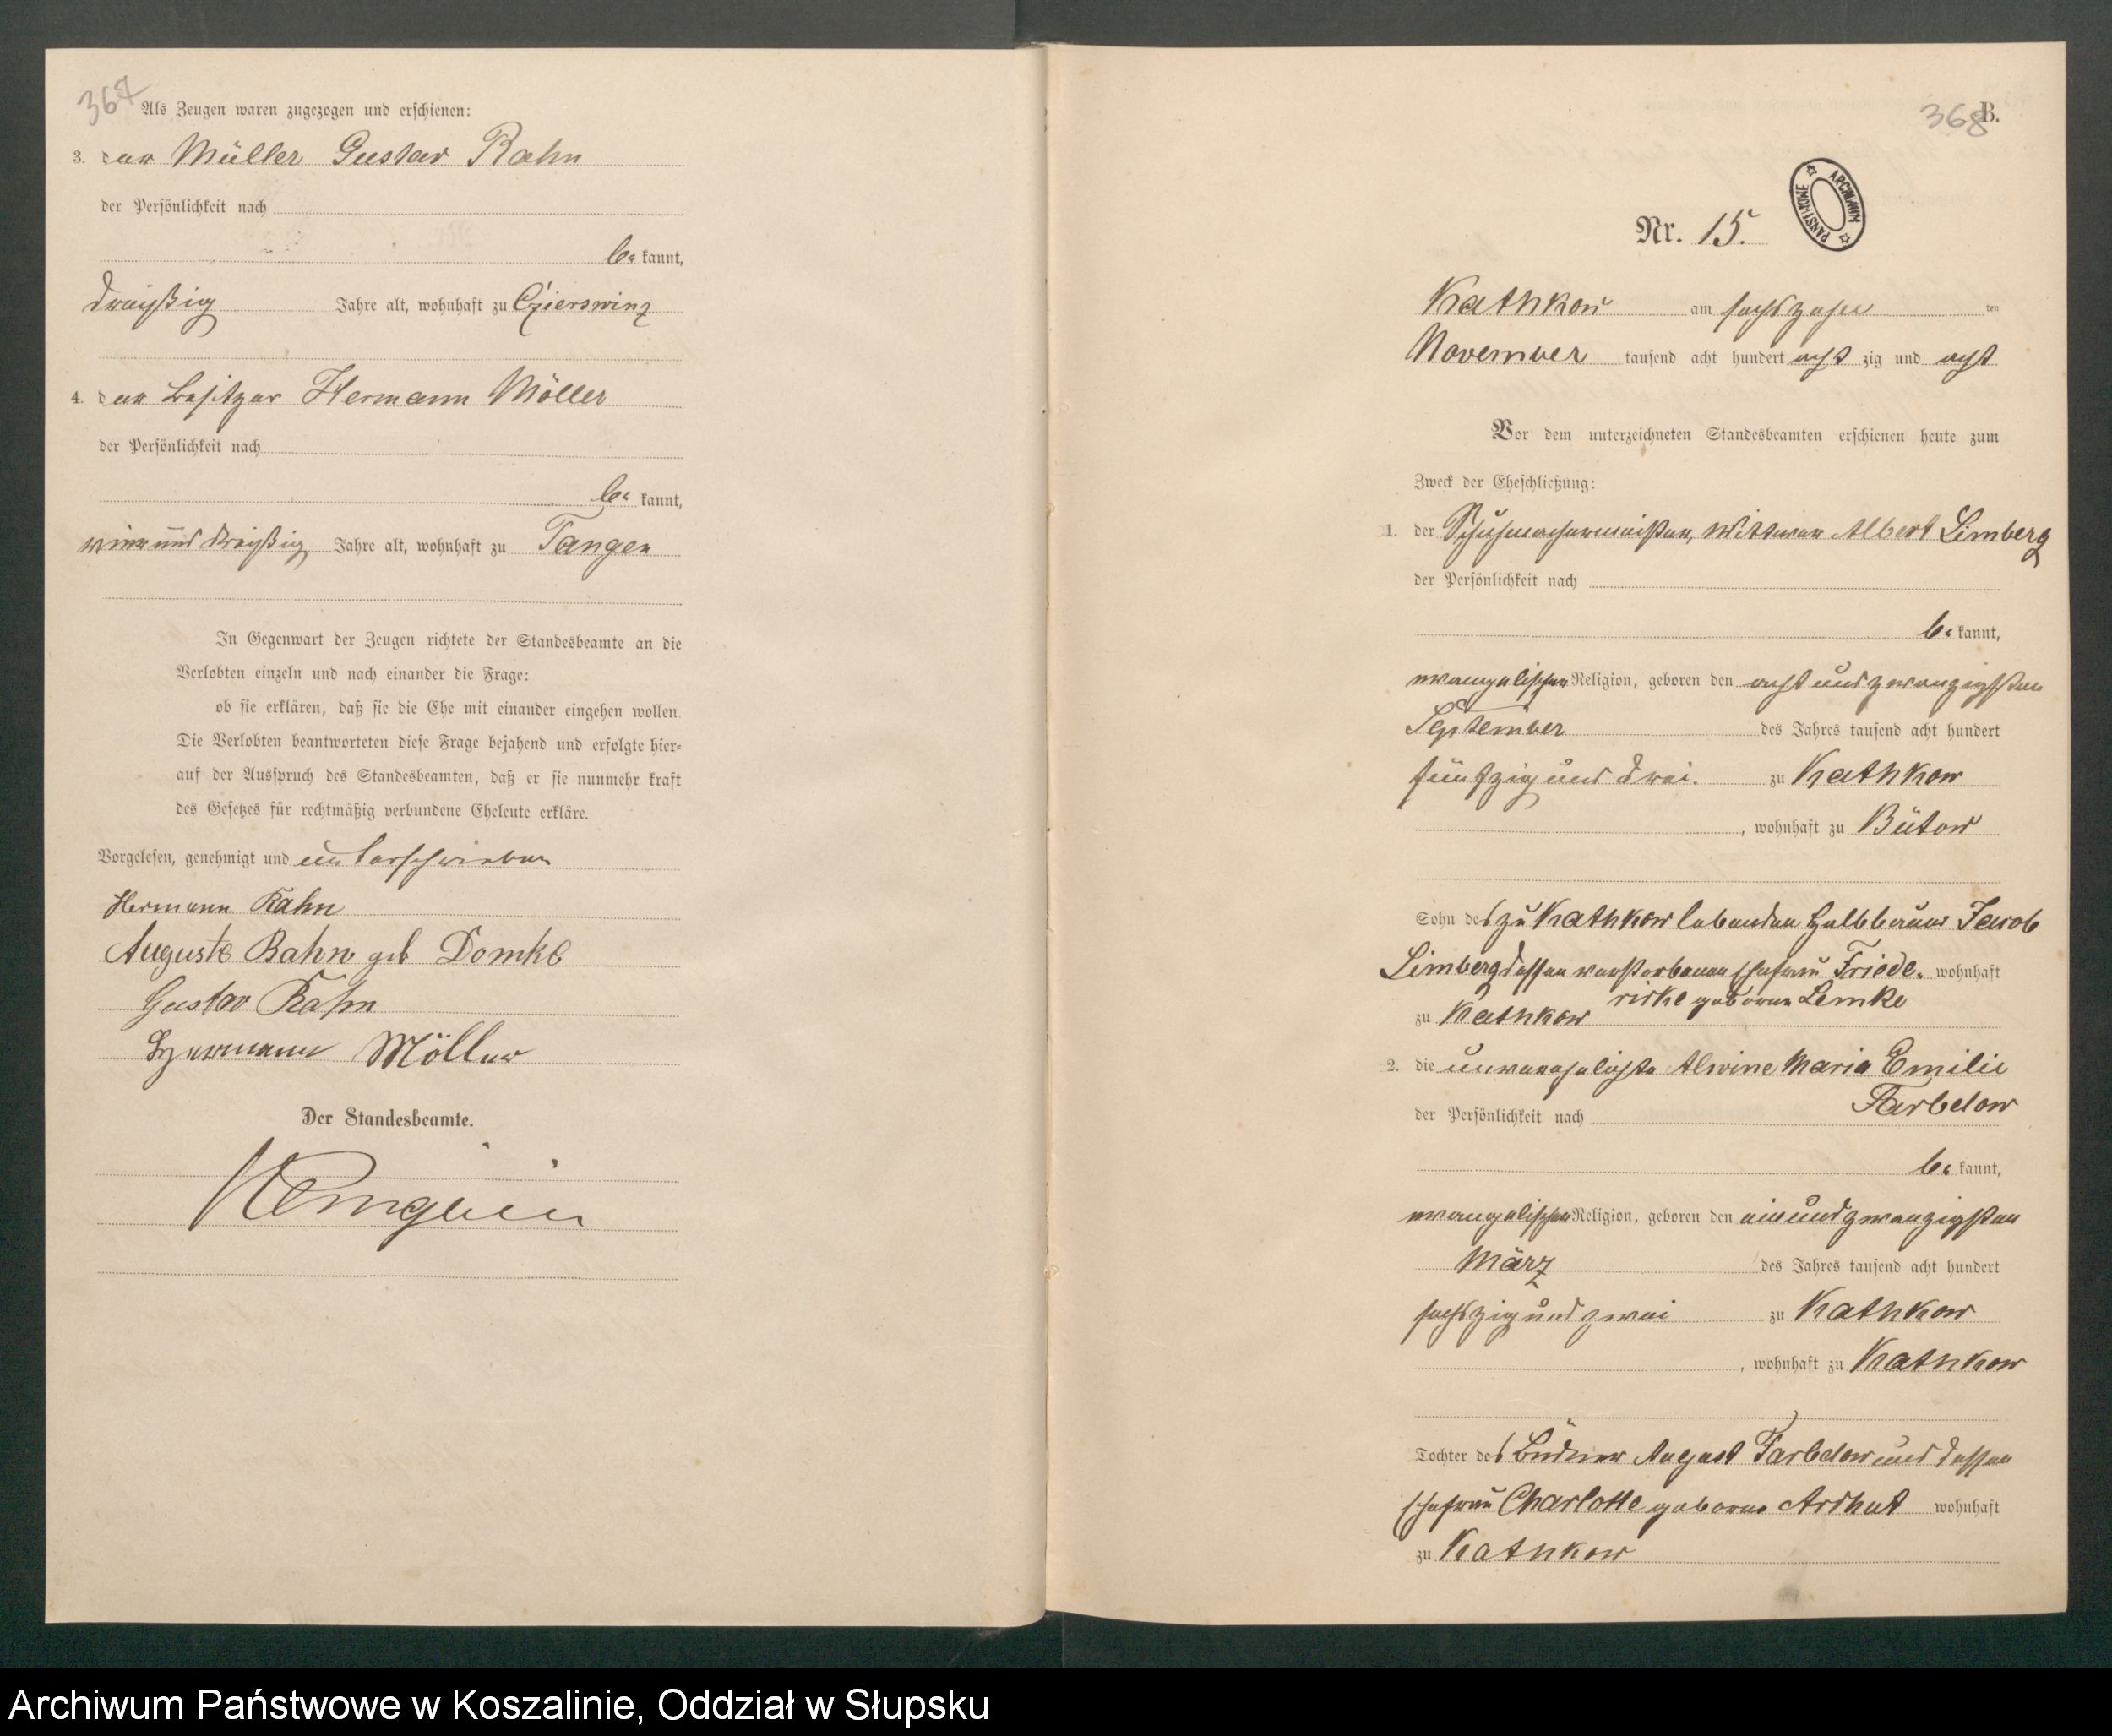 367
Als Zeugen waren zugezogen und erschienen:
3. der Müller Gustav Rahn
der Persönlichkeit nach
be kannt,
dreißig Jahre alt, wohnhaft zu Czierswinz
4. der Besitzer Hermann Möller
der Persönlichkeit nach
be kannt,
vierunddreißig Jahre alt, wohnhaft zu Tangen
In Gegenwart der Zeugen richtete der Standesbeamte an die
Verlobten einzeln und nach einander die Frage:
ob sie erklären, daß sie die Ehe mit einander eingehen wollen.
Die Verlobten beantworteten diese Frage bejahend und erfolgte hier-
auf der Ausspruch des Standesbeamten, daß er sie nunmehr kraft
des Gesetzes für rechtmäßig verbundene Eheleute erkläre.
Vorgelesen, genehmigt und unterschrieben
Hermann Rahn
Auguste Rahn geb Domke
Gustav Rahn
Hermann Möller
Der Standesbeamte.
368 B.
ARCHIWUM PAŃSTWOWE
Nr. 15.
Kathkow am sechszehn ten
November tausend acht hundert acht zig und acht
Vor dem unterzeichneten Standesbeamten erschienen heute zum
Zweck der Eheschließung:
1. der Schuhmachermeister, Wittwer Albert Limberg
der Persönlichkeit nach
be kannt,
evangelischer Religion, geboren den acht und zwanzigsten
September des Jahres tausend acht hundert
fünfzig und drei. zu Kathkow
, wohnhaft zu Bütow
Sohn des zu Kathkow lebenden Halbbauer Jacob
Limberg dessen verstorbenen Ehefrau Friede- wohnhaft
rike geborene Lemke
zu Kathkow
2. die unverehelichte Alwine Maria Emilie
Farbelow
der Persönlichkeit nach
be kannt,
evangelischer Religion, geboren den einundzwanzigsten
März des Jahres tausend acht hundert
sechszig und zwei zu Kathkow
, wohnhaft zu Kathkow
Tochter des Büdner August Farbelow und dessen
Ehefrau Charlotte geborene Ardhut wohnhaft
zu Kathkow
Archiwum Państwowe w Koszalinie, Oddział w Słupsku